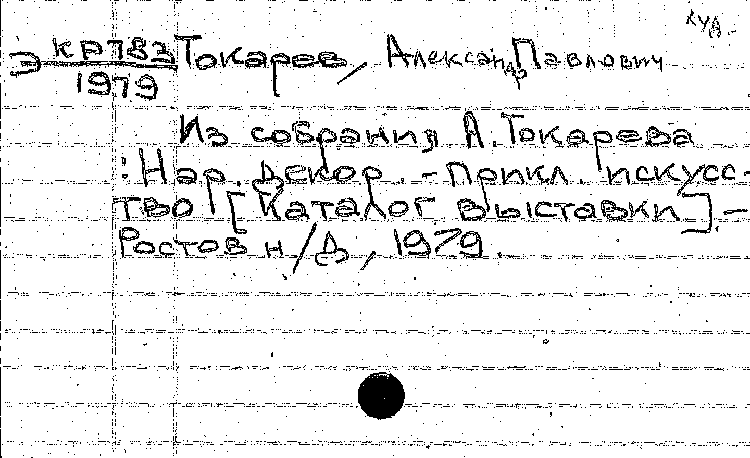 худ.
Э КР783 Токарев, Александр Павлович
1979
Из собрания А. Токарева
: Нар. декор. - прикл. искусс-
тво [Каталог выставки]. -
Ростов н/Д, 1979.